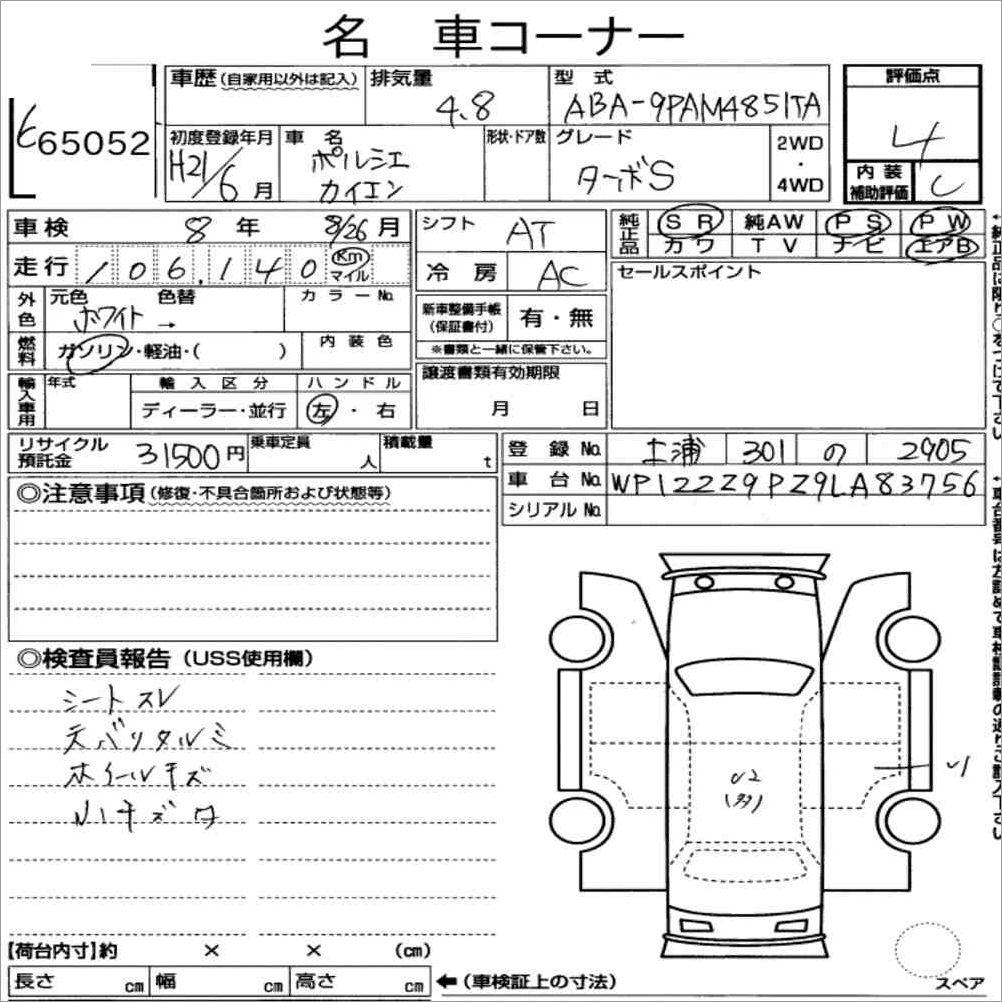 名 車コーナー
65052
車歴 (自家用以外は記入) 排気量 4.8
型式 ABA-9PAM4851TA
評価点 4
初度登録年月 H21/6月
車名 ポルシェ カイエン
形状・ドア数
グレード ターボS
2WD・4WD
内装補助評価 C
車検 8年 8/26月
シフト AT
純正品 SR 純AW PS PW
カワ TV ナビ エアB
走行 106,140 Km マイル
冷房 AC
セールスポイント
外色 元色 ホワイト → 色替 カラーNo.
新車整備手帳 (保証書付) 有・無
※書類と一緒に保管下さい。
燃料 ガソリン・軽油・( ) 内装色
譲渡書類有効期限 月 日
輸入車用 年式 輸入区分 ハンドル
ディーラー・並行 左・右
リサイクル預託金 31500円 乗車定員 人 積載量 t
登録No. 土浦 301 の 2905
車台No. WP1ZZZ9PZ9LA83756
シリアルNo.
◎注意事項 (修復・不具合箇所および状態等)
◎検査員報告 (USS使用欄)
シートスレ
天バリタルミ
ホイールキズ
小キズワ
U2
U1
【荷台内寸】約 × × (cm)
長さ cm 幅 cm 高さ cm ← (車検証上の寸法)
スペア